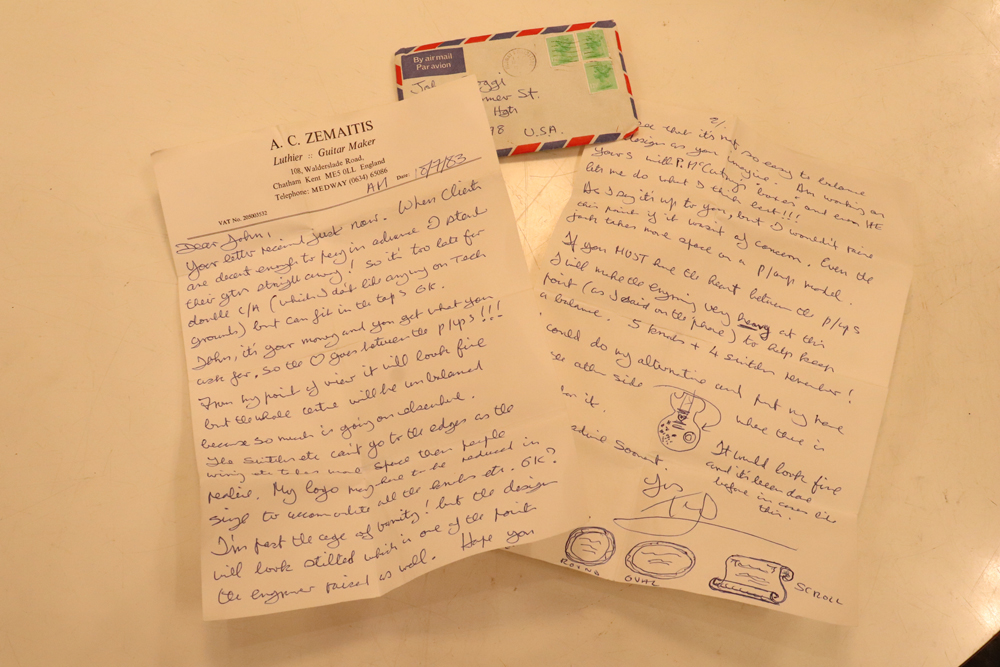 By air mail
Par avion
St.
Hgts
U.S.A.
A. C. ZEMAITIS
Luthier :: Guitar Maker
108, Walderslade Road,
Chatham Kent ME5 0LL England
Telephone: MEDWAY (0634) 65086
AM Date: 12/7/83
VAT No. 205003532
Dear John,
Your letter received just now. When clients
are decent enough to pay in advance I start
their gtrs straight away! So it's too late for
double C/A (which I don't like anyway on Tech
grounds) but can fit in the taps OK.
John, it's your money and you get what you
ask for. So the ♡ goes between the p/ups!!!
From my point of view it will look fine
but the whole centre will be unbalanced
because so much is going on elsewhere.
The switches etc can't go to the edges as the
wiring etc takes more space than people
realise. My logo may have to be reduced in
size to accomodate all the knobs etc. OK?
I'm past the age of vanity! but the design
will look stilted which is one of the points
the engraver raised as well. Hope you
2/.
see that it's not so easy to balance
design as you imagine. Am working on
yours with P. McCartney's boxes and even He
lets me do what I think best!!!
As I say it's up to you, but I wouldn't raise
this point if it wasn't of concern. Even the
jack takes more space on a p/ups model.
If you MUST have the heart between the p/ups
I will make the engraving very heavy at this
point (as I said on the phone) to help keep
a balance. 5 knobs + 4 switches remember!
could do my alternative and put my name
the other side where there is
for it.
It would look fine
and it's been done
before in cases like
this.
Soonest.
Yrs
ROUND
OVAL
SCROLL